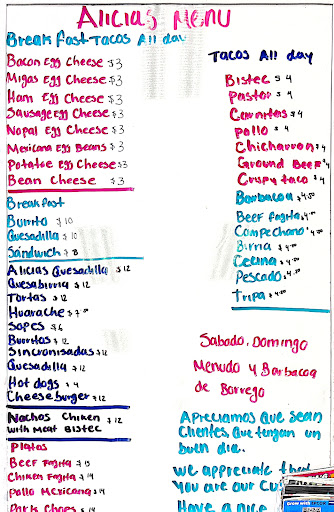 Alicias Menu
Breakfast-Tacos All day
Bacon Egg Cheese $3
Migas Egg Cheese $3
Ham Egg Cheese $3
Sausage Egg Cheese $3
Nopal Egg Cheese $3
Mexicana Egg Beans $3
Potatoe Egg Cheese $3
Bean Cheese $3
Breakfast
Burrito $10
Quesadilla $10
Sandwich $8
Alicias Quesadilla $12
Quesabirria $12
Tortas $12
Huarache $7.00
Sopes $6
Burritos $12
Sincronisadas $12
Quesadilla $12
Hot dogs $4
Cheeseburger $12
Nachos Chiken $12
with Meat Bistec
Platos
Beef Fagita $15
Chiken Fagita $14
Pollo Mexicana $14
Pork Chops $14
Tacos All day
Bistec $4
Pastor $4
Carnitas $4
Pollo $4
Chicharron $4
Ground Beef $4
Crispy taco $4
Barbacoa $4.50
Beef Fagita $4.50
Campechano $4.50
Birria $4.50
Cecina $4.50
Pescado $4.50
Tripa $4.50
Sabado, Domingo
Menudo y Barbacoa
de Borrego
Apreciamos que sean
Clientes, que tengan un
buen dia.
We appreciate that
You are our Cu
Have a nice